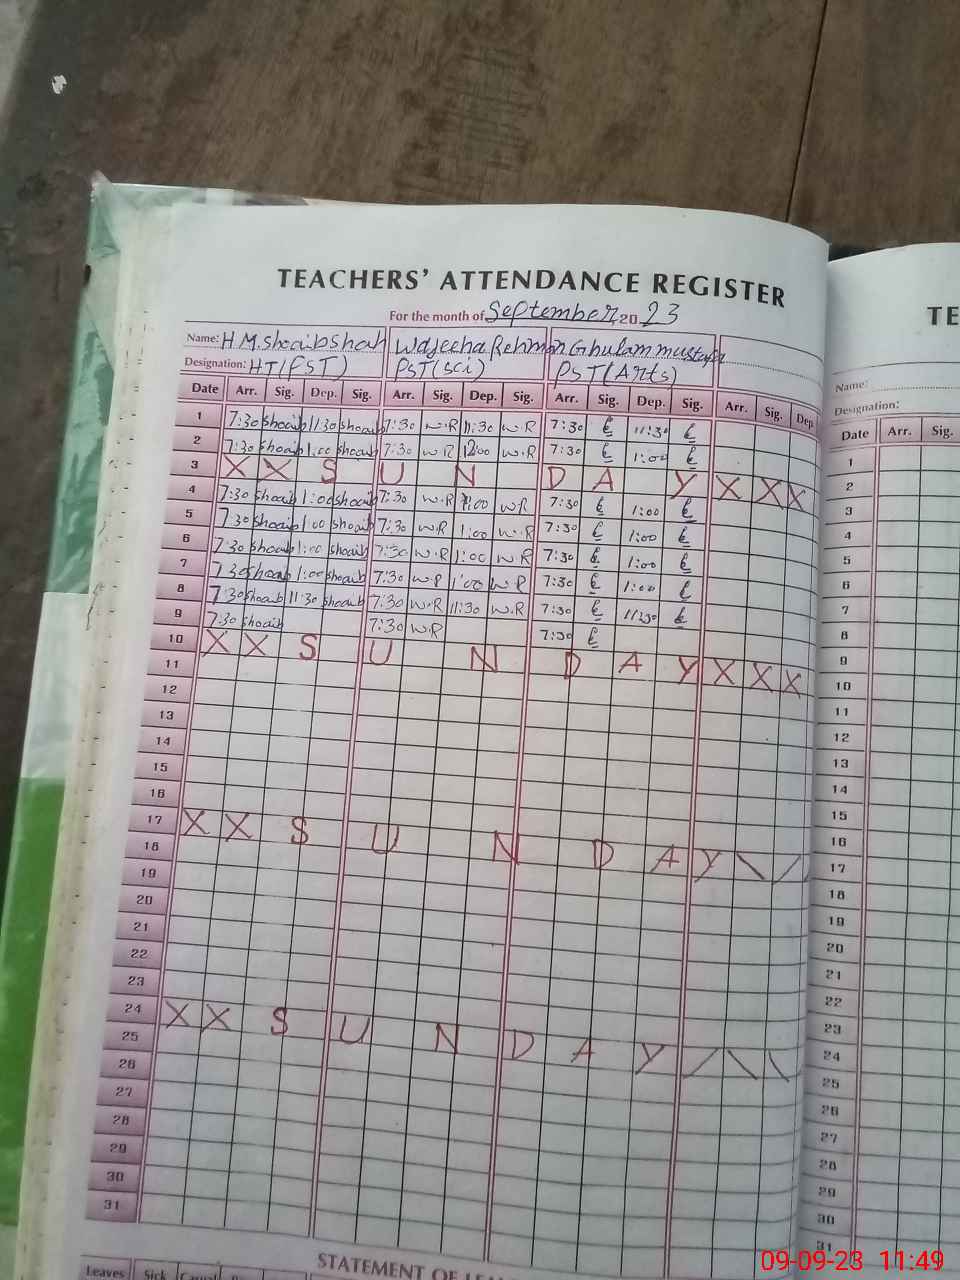 TEACHERS' ATTENDANCE REGISTER
For the month of September 2023
Name: H.M.shoaibshah Wajeeha Rehman Ghulam mustafa
Designation: HT(EST) PST(sci) PST(Arts)
Date Arr. Sig. Dep. Sig. Arr. Sig. Dep. Sig. Arr. Sig. Dep. Sig. Arr. Sig. Dep
1 7:30 shoaib 11:30 shoaib 7:30 W.R 11:30 W.R 7:30 11:30
2 7:30 shoaib 1:00 shoaib 7:30 W.R 12:00 W.R 7:30 1:00
3 X X S U N D A Y X X X
4 7:30 shoaib 1:00 shoaib 7:30 W.R 1:00 W.R 7:30 1:00
5 7:30 shoaib 1:00 shoaib 7:30 W.R 1:00 W.R 7:30 1:00
6 7:30 shoaib 1:00 shoaib 7:30 W.R 1:00 W.R 7:30 1:00
7 7:30 shoaib 1:00 shoaib 7:30 W.R 1:00 W.R 7:30 1:00
8 7:30 shoaib 11:30 shoaib 7:30 W.R 11:30 W.R 7:30 11:30
9 7:30 shoaib 7:30 W.R 7:30
10 X X S U N D A Y X X X
11
12
13
14
15
16
17 X X S U N D A Y
18
19
20
21
22
23
24 X X S U N D A Y
25
26
27
28
29
30
31
STATEMENT OF
Leaves Sick
TE
Name:
Designation:
Date Arr. Sig.
1
2
3
4
5
6
7
8
9
10
11
12
13
14
15
16
17
18
19
20
21
22
23
24
25
26
27
28
29
30
31
09-09-23 11:49